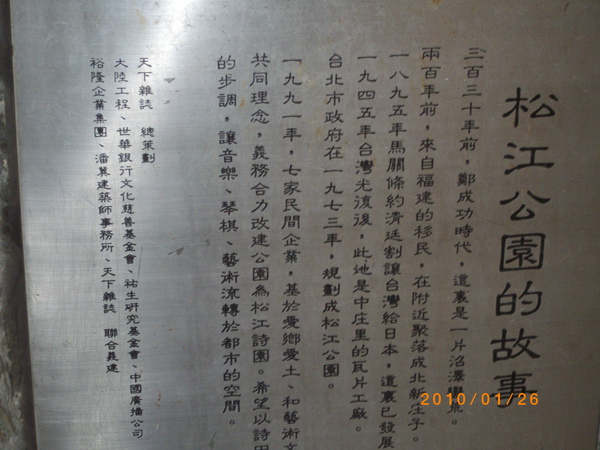 松江公園的故事
三百三十年前，鄭成功時代，這裏是一片沼澤蠻荒。
兩百年前，來自福建的移民，在附近聚落成北新庄子。
一八九五年馬關條約清廷割讓台灣給日本，這裏已發展
一九四五年台灣光復後，此地是中庄里的瓦片工廠。
台北市政府在一九七三年，規劃成松江公園。
一九九一年，七家民間企業，基於愛鄉愛土、和藝術文
共同理念，義務合力改建公園為松江詩園。希望以詩田
的步調，讓音樂、琴棋、藝術流轉於都市的空間。
天下雜誌 總策劃
大陸工程、世華銀行文化慈善基金會、祐生研究基金會、中國廣播公司
裕隆企業集團、潘冀建築師事務所、天下雜誌 聯合義建
2010/01/26